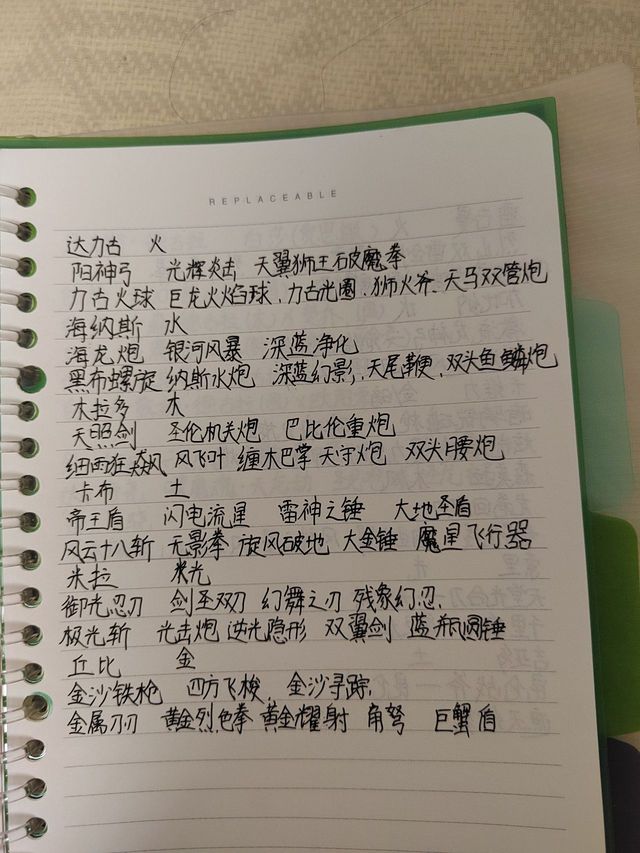 REPLACEABLE
达力古 火
阳神弓 光辉炎击 天翼狮王破魔拳
力古火球 巨龙火焰球、力古光圈、狮火斧、天马双管炮
海纳斯 水
海龙炮 银河风暴 深蓝净化
黑布螺旋 纳斯水炮 深蓝幻影、天尾鞭、双头鱼鳞炮
木拉多 木
天照剑 圣伦机关炮 巴比伦重炮
细雨狂飙 风飞叶 缠木巴掌 天守炮 双头腰炮
卡布 土
帝王盾 闪电流星 雷神之锤 大地圣盾
风云十八斩 无影拳 旋风破地 大金锤 魔星飞行器
米拉 光
御光忍刃 剑圣双刃 幻舞之刃 残象幻忍.
极光斩 光击炮 逆光隐形 双翼剑 蓝瓶圆锤
丘比 金
金沙铁枪 四方飞梭、金沙寻踪.
金属刃 黄金烈色拳 黄金耀射 角弩 巨蟹盾